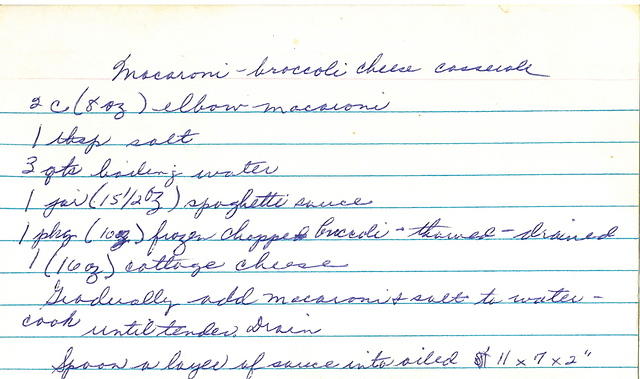 Macaroni - broccoli cheese casserole
2 c (8 oz) elbow macaroni
1 tbsp salt
3 qts boiling water
1 jar (15 1/2 oz) spaghetti sauce
1 pkg (10 oz) frozen chopped broccoli - thawed - drained
1 (16 oz) cottage cheese
Gradually add macaroni & salt to water -
cook until tender. Drain
Spoon a layer of sauce into oiled 11 x 7 x 2"